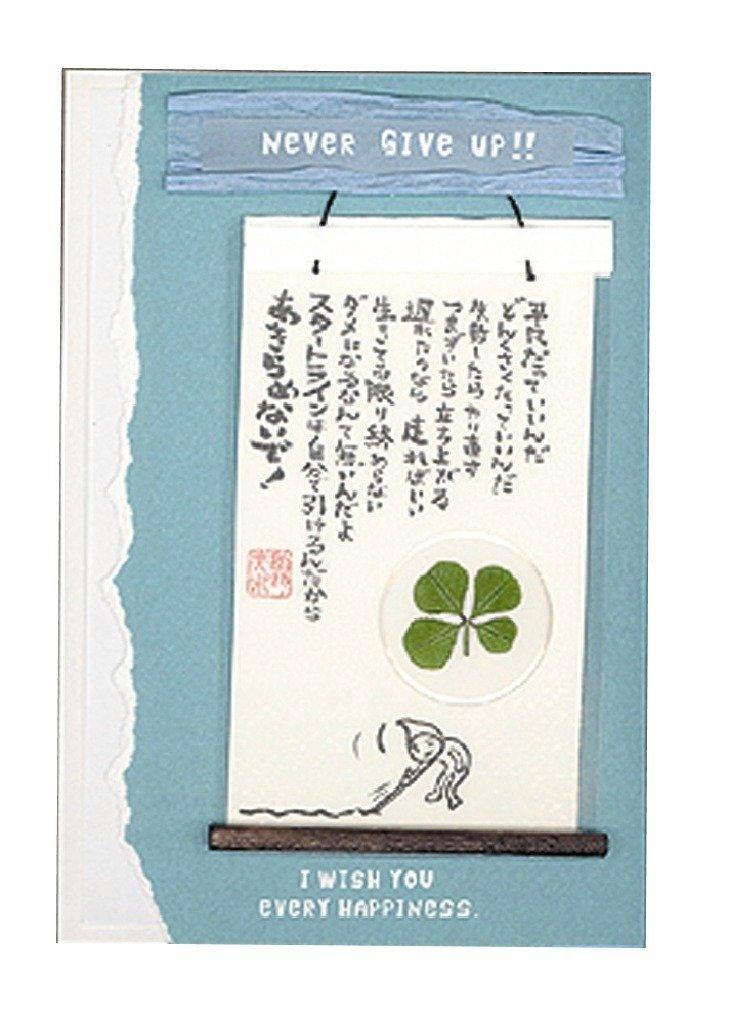 NEVER GIVE UP!!
平凡だっていいんだ
どんくさくたっていいんだ
失敗したらやり直す
つまずいたら立ち上がる
遅れたのなら 走ればいい
生きてる限り終わらない
ダメになるなんて無いんだよ
スタートラインは自分で引けるんだから
あきらめないで!
I WISH YOU
EVERY HAPPINESS.